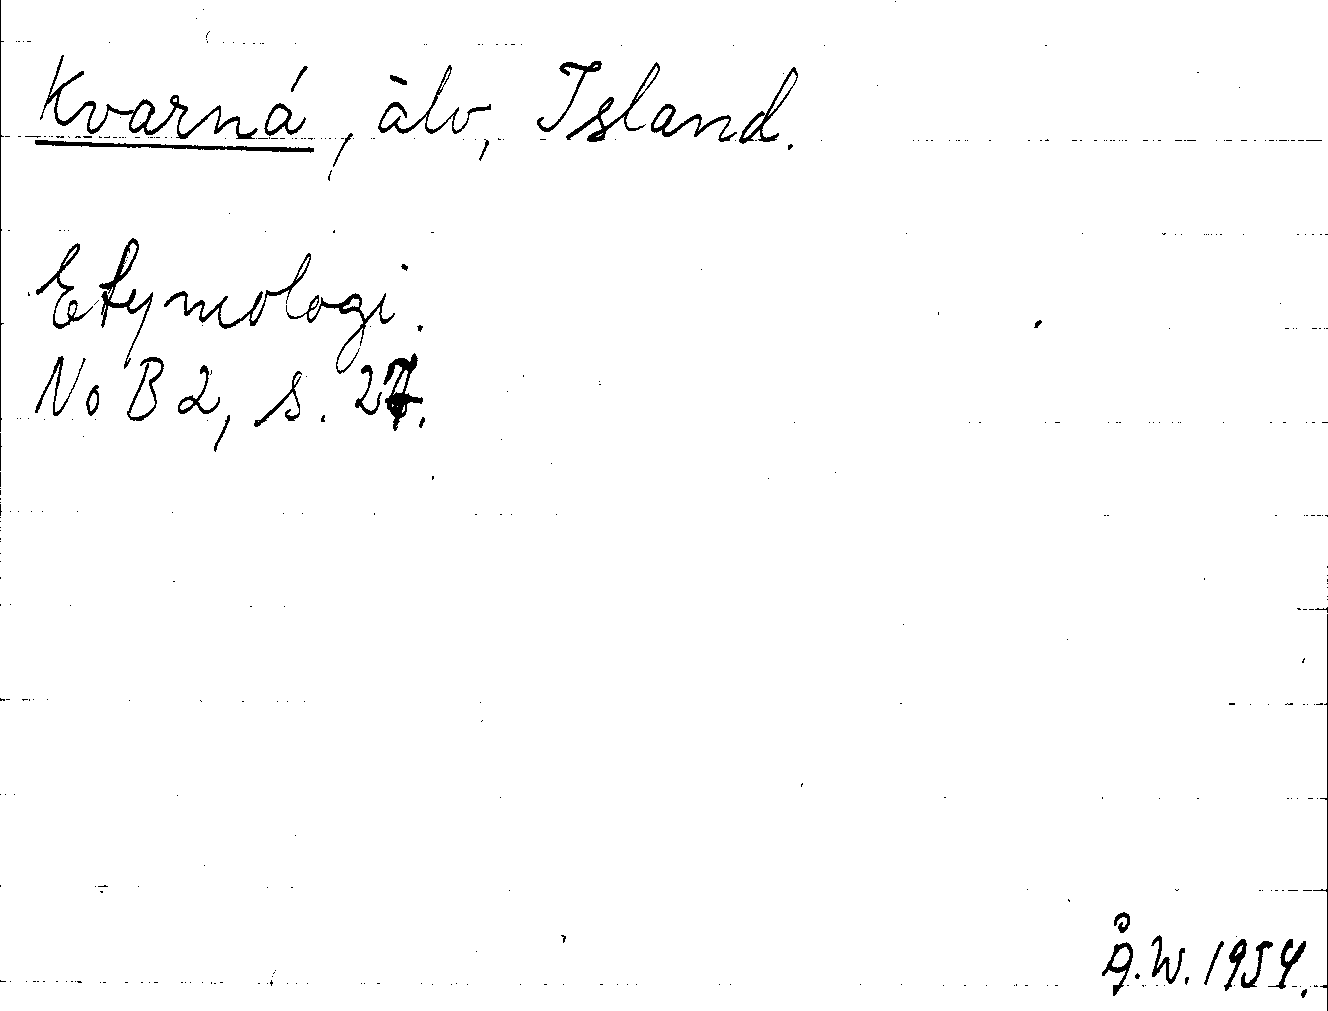 Kvarná, älv, Island.
Etymologi.
NoB 2, s. 27.
Å.W. 1954.